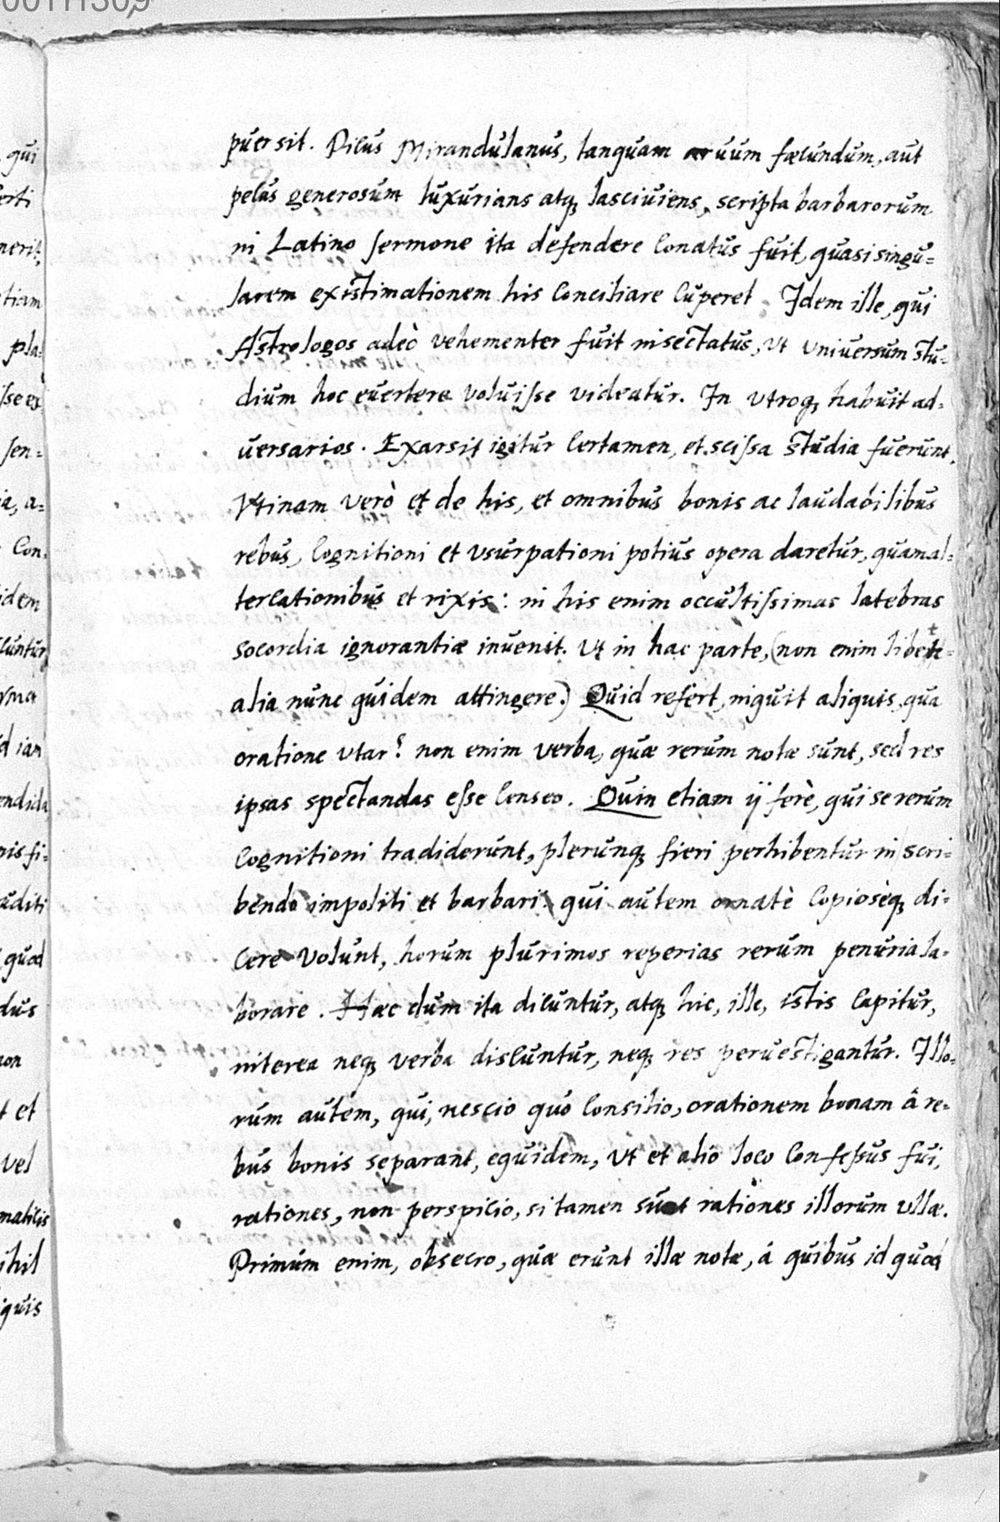 puersit. Picus Mirandulanus, tanquam aruum fœcundum, aut
pecus generosum luxurians atq; lasciuiens, scripta barbarorum
in Latino sermone ita defendere conatus fuit, quasi singu=
larem existimationem his conciliare cuperet. Idem ille, qui
Astrologos adeò vehementer fuit insectatus, vt vniuersum stu=
dium hoc euertere voluisse videatur. In vtroq; habuit ad=
uersarios. Exarsit igitur certamen, et scissa studia fuerunt.
Vtinam verò et de his, et omnibus bonis ac laudabilibus
rebus, cognitioni et vsurpationi potius opera daretur, quam al=
tercationibus et rixis: in his enim occultissimas latebras
socordia ignorantiæ inuenit. Vt in hac parte, (non enim libet
alia nunc quidem attingere.) Quid refert, inquit aliquis, qua
oratione vtar? non enim verba, quæ rerum notæ sunt, sed res
ipsas spectandas esse censeo. Quin etiam ij ferè, qui se rerum
cognitioni tradiderunt, plerunq; fieri perhibentur in scri=
bendo impoliti et barbari, qui autem ornatè copioseq; di=
cere volunt, horum plurimos reperias rerum penuria la=
borare. Hæc dum ita dicuntur, atq; hic, ille, istis capitur,
interea neq; verba discuntur, neq; res peruestigantur. Illo=
rum autem, qui, nescio quo consilio, orationem bonam â re=
bus bonis separant, equidem, vt et alio loco confessus fui,
rationes, non perspicio, si tamen sunt rationes illorum vllæ.
Primum enim, obsecro, quæ erunt illæ notæ, á quibus id quod